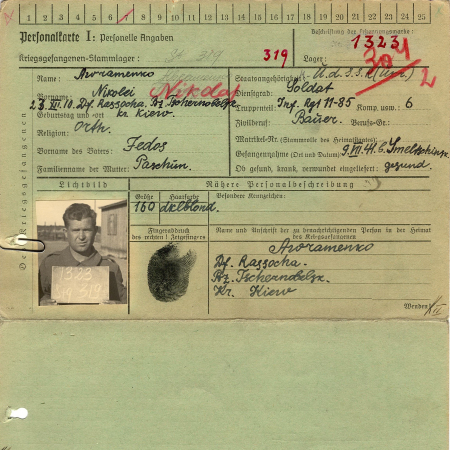 1 2 3 4 5 6 7 8 9 10 11 12 13 14 15 16 17 18 19 20 21 22 23 24 25
Personalkarte I: Personelle Angaben
Kriegsgefangenen-Stammlager: 319
Beschriftung der Erkennungsmarke
Nr. 1323
Lager: 304
2
Des Kriegsgefangenen
Name: Avramenko
Vorname: Nikolei
Nikolaj
Geburtstag und -ort 23.XI.10. Df. Rassocha. Bz. Tschernobelsk. kr. Kiew.
Religion: Orth.
Vorname des Vaters: Fedos
Familienname der Mutter: Paschun.
Staatsangehörigkeit: U.d.S.S.R.
Dienstgrad: Soldat
Truppenteil: Inf. Rgt 11-85 Komp. usw.: 6
Zivilberuf: Bauer. Berufs-Gr.:
Matrikel-Nr. (Stammrolle des Heimatstaates):
Gefangennahme (Ort und Datum):
Ob gesund, krank, verwundet eingeliefert: gesund.
Lichtbild
Nähere Personalbeschreibung
Größe
Haarfarbe
Besondere Kennzeichen:
160
dklblond.
Fingerabdruck
des rechten ! Zeigefingers
Name und Anschrift der zu benachrichtigenden Person in der Heimat
des Kriegsgefangenen
Avoramenko
Df. Rassocha.
Bz. Tschernobelsk.
Kr. Kiew
1323
319
Wenden!